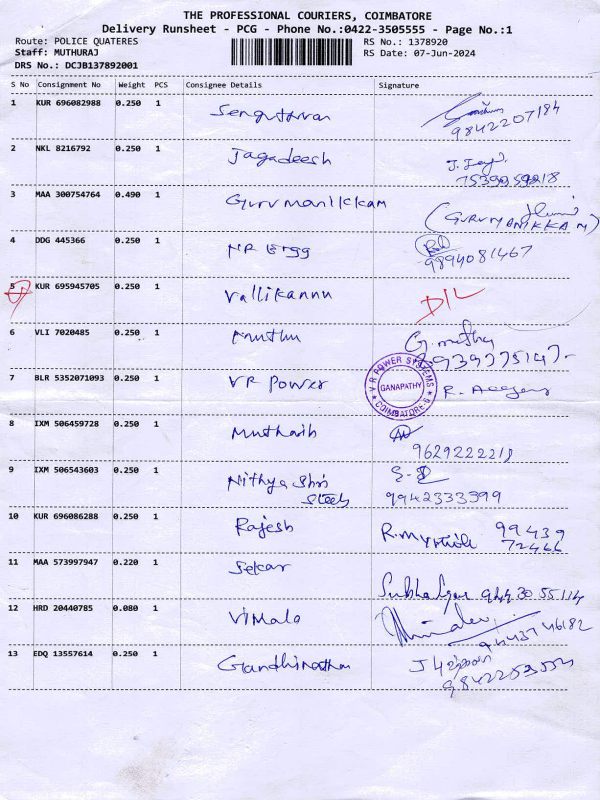 THE PROFESSIONAL COURIERS, COIMBATORE
Delivery Runsheet - PCG - Phone No.:0422-3505555 - Page No.:1
Route: POLICE QUATERES RS No.: 1378920
Staff: MUTHURAJ RS Date: 07-Jun-2024
DRS No.: DCJB137892001
S No Consignment No Weight PCS Consignee Details Signature
1 KUR 696082988 0.250 1 Senguttuvan
9842207184
2 NKL 8216792 0.250 1 Jagadeesh
3 MAA 300754764 0.490 1 Gurumanikkam
(GURUMANIKKAM)
4 DDG 445366 0.250 1 MR Engg
9894081467
5 KUR 695945705 0.250 1 Vallikannu D/L
6 VLI 7020485 0.250 1 Muthu G. muthu
7 BLR 5352071093 0.250 1 VR Power V R POWER SYSTEMS GANAPATHY COIMBATORE-6
8 IXM 506459728 0.250 1
9629222218
9 IXM 506543603 0.250 1 Nithya Shri
Steels 9942333399
10 KUR 696086288 0.250 1 Rajesh 99439
72466
11 MAA 573997947 0.220 1 Sekar
944 30 55 114
12 HRD 20440785 0.080 1 Vimala
9443746182
13 EDQ 13557614 0.250 1 Gandhinathan
9842253554